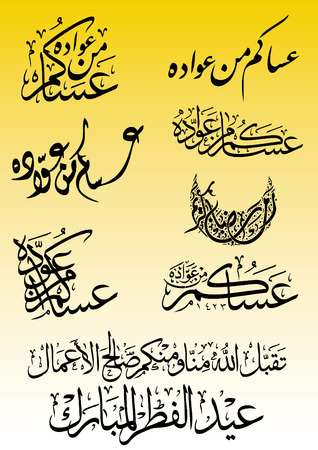 عساكم من عواده
عساكم من عواده
عساكم من عوّاده
عساكم من عوّاده
عساكم من عوّاده
عساكم من عوّاده
تقبّل الله منّا ومنكم صالح الأعمال
عيد الفطر المبارك